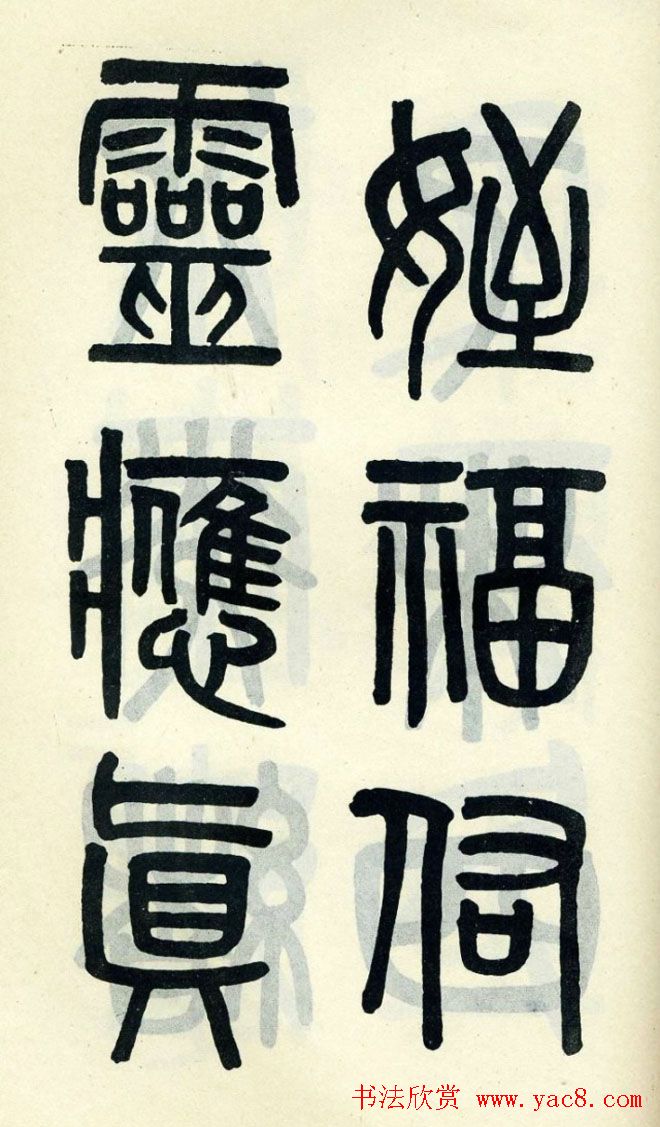 姪福伺
靈應眞
书法欣赏 www.yac8.com